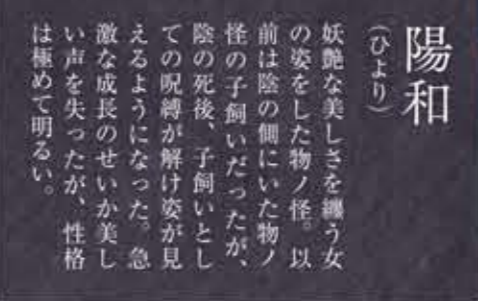 陽和
（ひより）
妖艶な美しさを纏う女
の姿をした物ノ怪。以
前は陰の側にいた物ノ
怪の子飼いだったが、
陰の死後、子飼いとし
ての呪縛が解け姿が見
えるようになった。急
激な成長のせいか美し
い声を失ったが、性格
は極めて明るい。